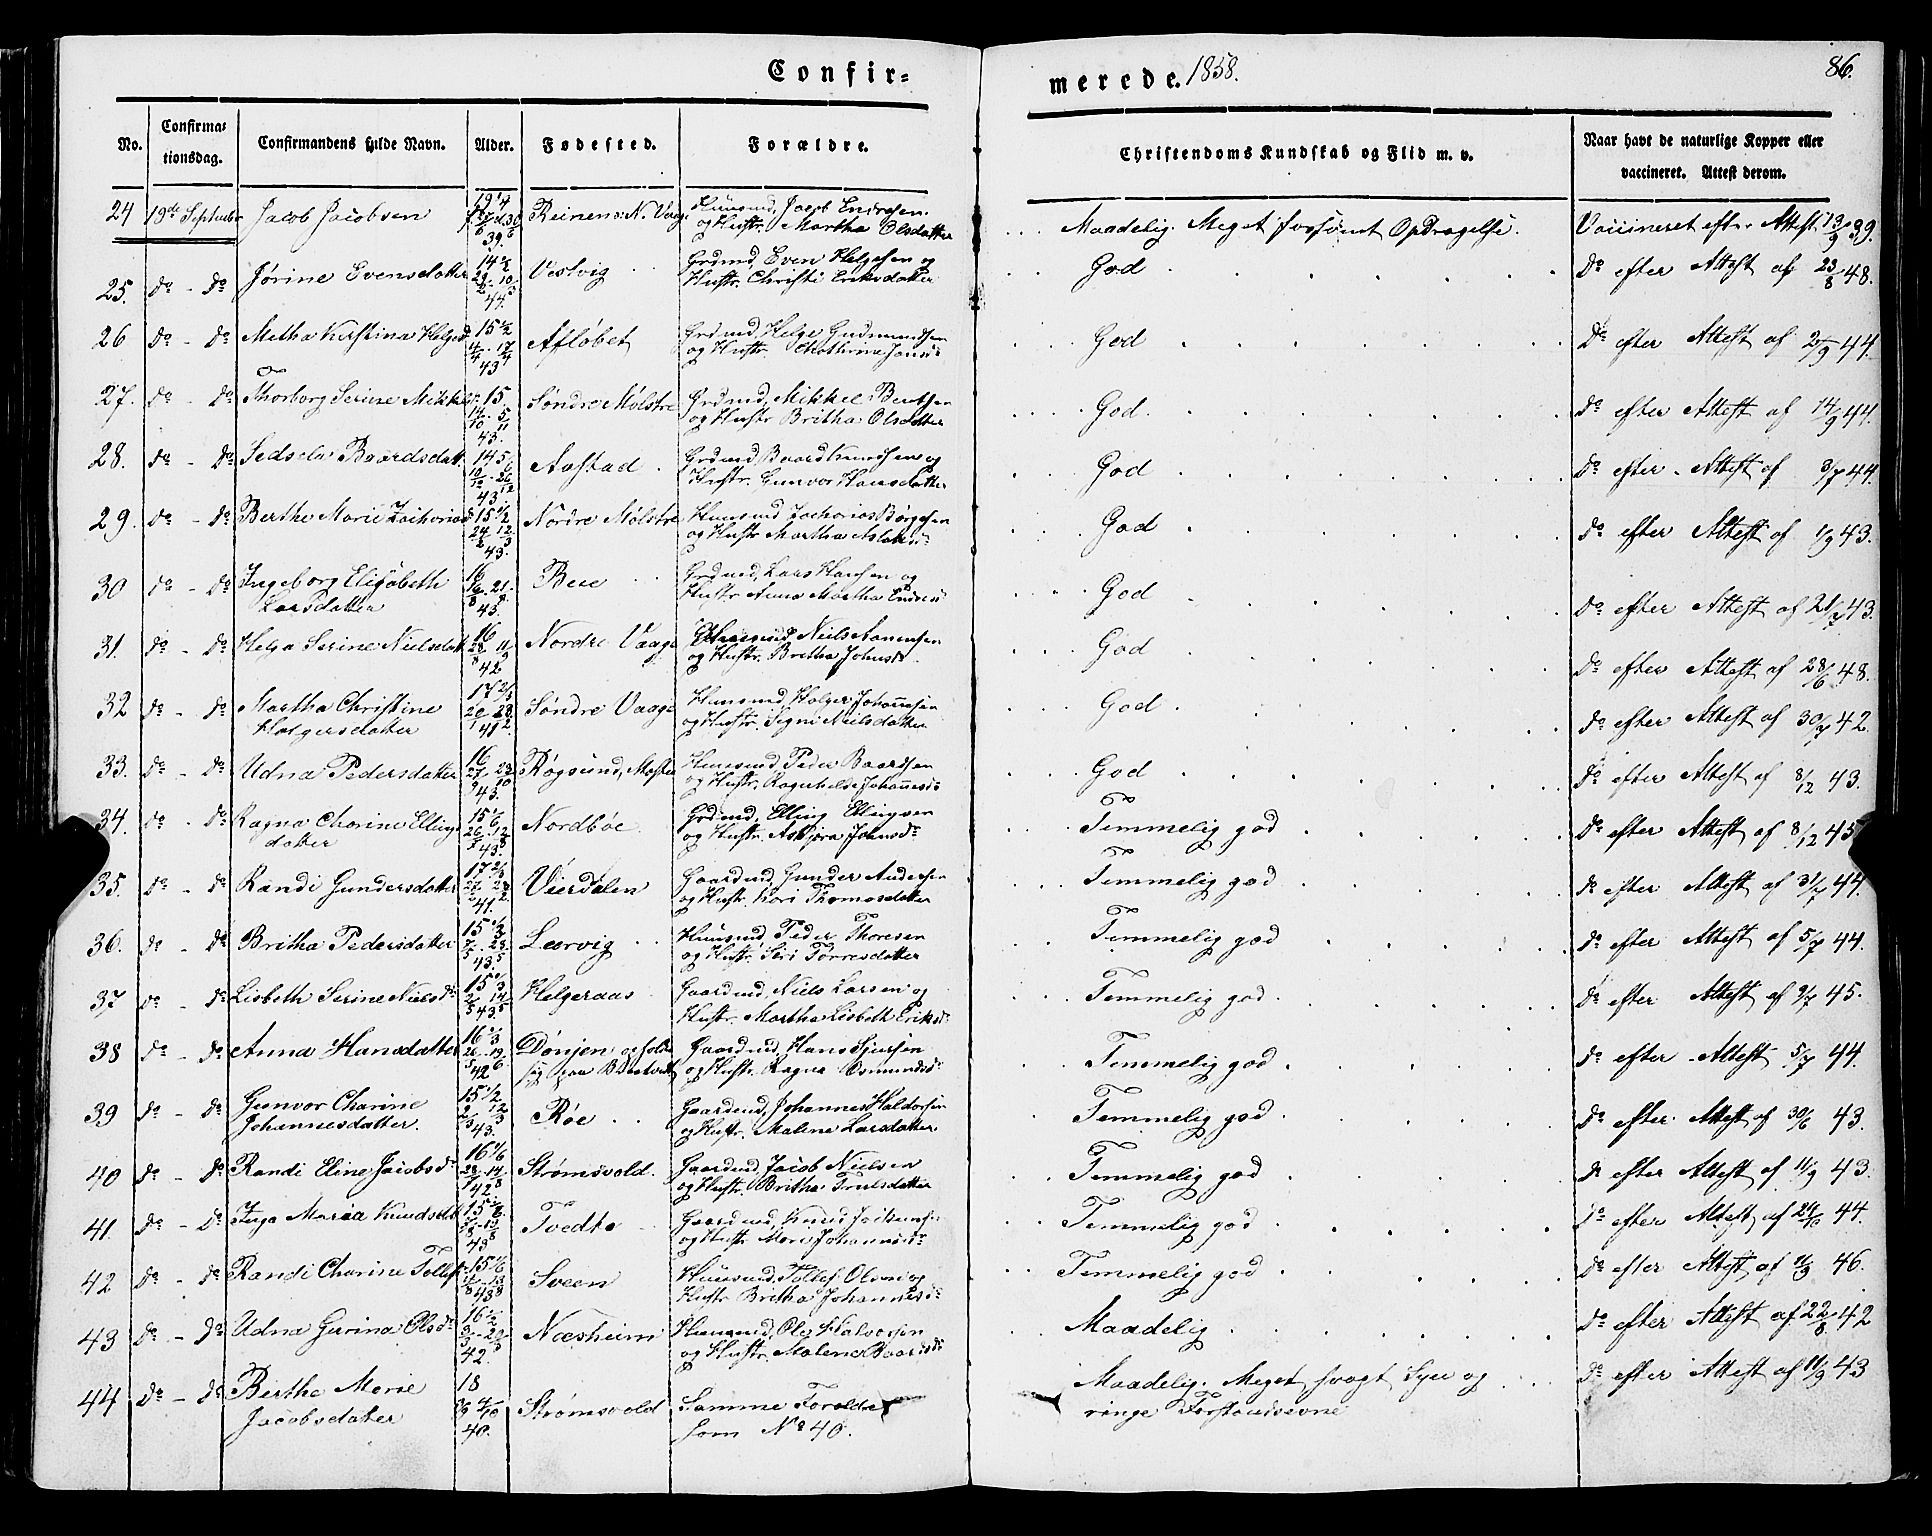 Confir=
merede. 1858.
86.
No.
Confirmationsdag.
Confirmandens fulde Navn.
Alder.
Fødested.
Forældre.
Christendoms Kundskab og Flid m. v.
Naar havt de naturlige Kopper eller vaccineret. Attest derom.
24 19de September Jacob Jacobsen Huusmd, Jacob Endresen
39. og Hustr. Martha Olsdatter Maadelig. Meget forsømt Opdragelse. Vaccineret eft. Attest 13/9 39.
25. do - do Jørine Evensdatter Vestvig Grdmd, Even Helgesen og
44. Hustr. Christi Eriksdatter God do efter Attest af 23/8 48.
26 do - do Metha Kirstina Helgesd 15 1/2 Afløbet Grdmd, Helge Gudmundsen
43 og Hustr. God Do efter Attest af 2/9 44.
27. do - do Thorborg Serine Mikkels 15. Søndre Mølstre Grdmd, Mikkel Bentsen
43. og Hustr Britha Olsdatter God. do efter Attest af 14/9 44.
28. do - do Baardsdatt. Aastad Grdmd, Baard Knudsen og
43 Hustr. Gunvor Hansdatter God do efter Attest af 3/7 44.
29. do - do Berthe Marie Zachariasd 15 1/2 Nordre Mølstre Huusmd Zacharias Børgesen
43. og Hustr Martha Aslaksd God do efter Attest af 1/9 43.
30 do - do Ingeborg Elisabeth 16 Bue Grdmd, Lars Hansen og
Larsdatter 43. Hustr Anna Martha God do efter Attest af 43.
31. do - do Helga Serine Nielsdatt 16 Nordre Vaage Huusmd Niels Aanensen
42 og Hustr. Britha Johnsd. God do efter Attest af 28/6 48.
32 do - do Martha Christine 17 Søndre Vaage Huusmd, Holger Johannesen
Holgersdatter 41 og Hustr. Signi Nielsdatter God do efter Attest af 30/7 42.
33. do - do Udna Pedersdatter 16 Røgsund, Moster Huusmd Peder Baardsen
43. og Hustr. Ragnhilde Johannesd God do efter Attest af 8/12 43.
34. do - do Ragna Charine Ellings 15 1/6 Nordbøe Grdmd, Elling Ellingsen
datter 43. og Hustr. Asbjøra Johnsdr Temmelig god do efter Attest af 8/12 45
35. do - do Randi Gundersdatter 17 2/3 Vierdalen Gaardmd Gunder Andersen
41. og Hustr. Kari Thomasdatter Temmelig god do efter Attest af 31/7 44.
36. do - do Britha Pedersdatter 15 1/3 Leervig Huusmd Peder Thoresen
43. og Hustr. Siri Torresdatter Temmelig god do efter Attest af 5/7 44.
37 do - do Lisbeth Serine Nielsdr 15 1/3 Helgeraas Gaardmd, Niels Larsen og
43 Hustr. Martha Lisbeth Eriksdr Temmelig god do efter Attest af 9/7 45.
38 do - do Anna Hansdatter 16 1/3 Dønjen Gaardmd Hans Sjursen
42 og Hustr. Ragna Osmundsdr Temmelig god do efter Attest 5/7 44.
39 do - do Gunvor Charine 15 1/2 Røe Gaardmd, Johannes Haldorsen
Johannesdatter. 43. og Hustr. Malene Larsdatter Temmelig god do efter Attest af 30/6 43.
40 do - do Randi Eline Jacobsdr 16 1/6 Strømsvold. Gaardmd, Jacob Nielsen
42 og Hustr. Britha Truelsdatter Temmelig god do efter Attest af 11/9 43.
41. do - do Inga Maria Knudsdatt Tvedte Gaardmd, Knud
43 og Hustr Mari Johannesdr Temmelig god do efter Attest af 24/10 44.
42 do - do Randi Charine Tollefs 15 1/6 Sveen Huusmd, Tollef Olsen og
43 Hustr Britha Johannesdr Temmelig god do efter Attest af 46.
43 do - do Udna Gurina Olsdr 16 1/2 Næsheim Huusmd, Ole Halvorsen
42. og Hustr. Malene Baardsdr Maadelig do efter Attest af 22/8 42
44 do - do Berthe Marie 18 Strømsvold Samme Forældre Maadelig. Meget svagt Syn og do efter Attest af 11/9 43
Jacobsdatter 40. som No 40. ringe Forstandsevne